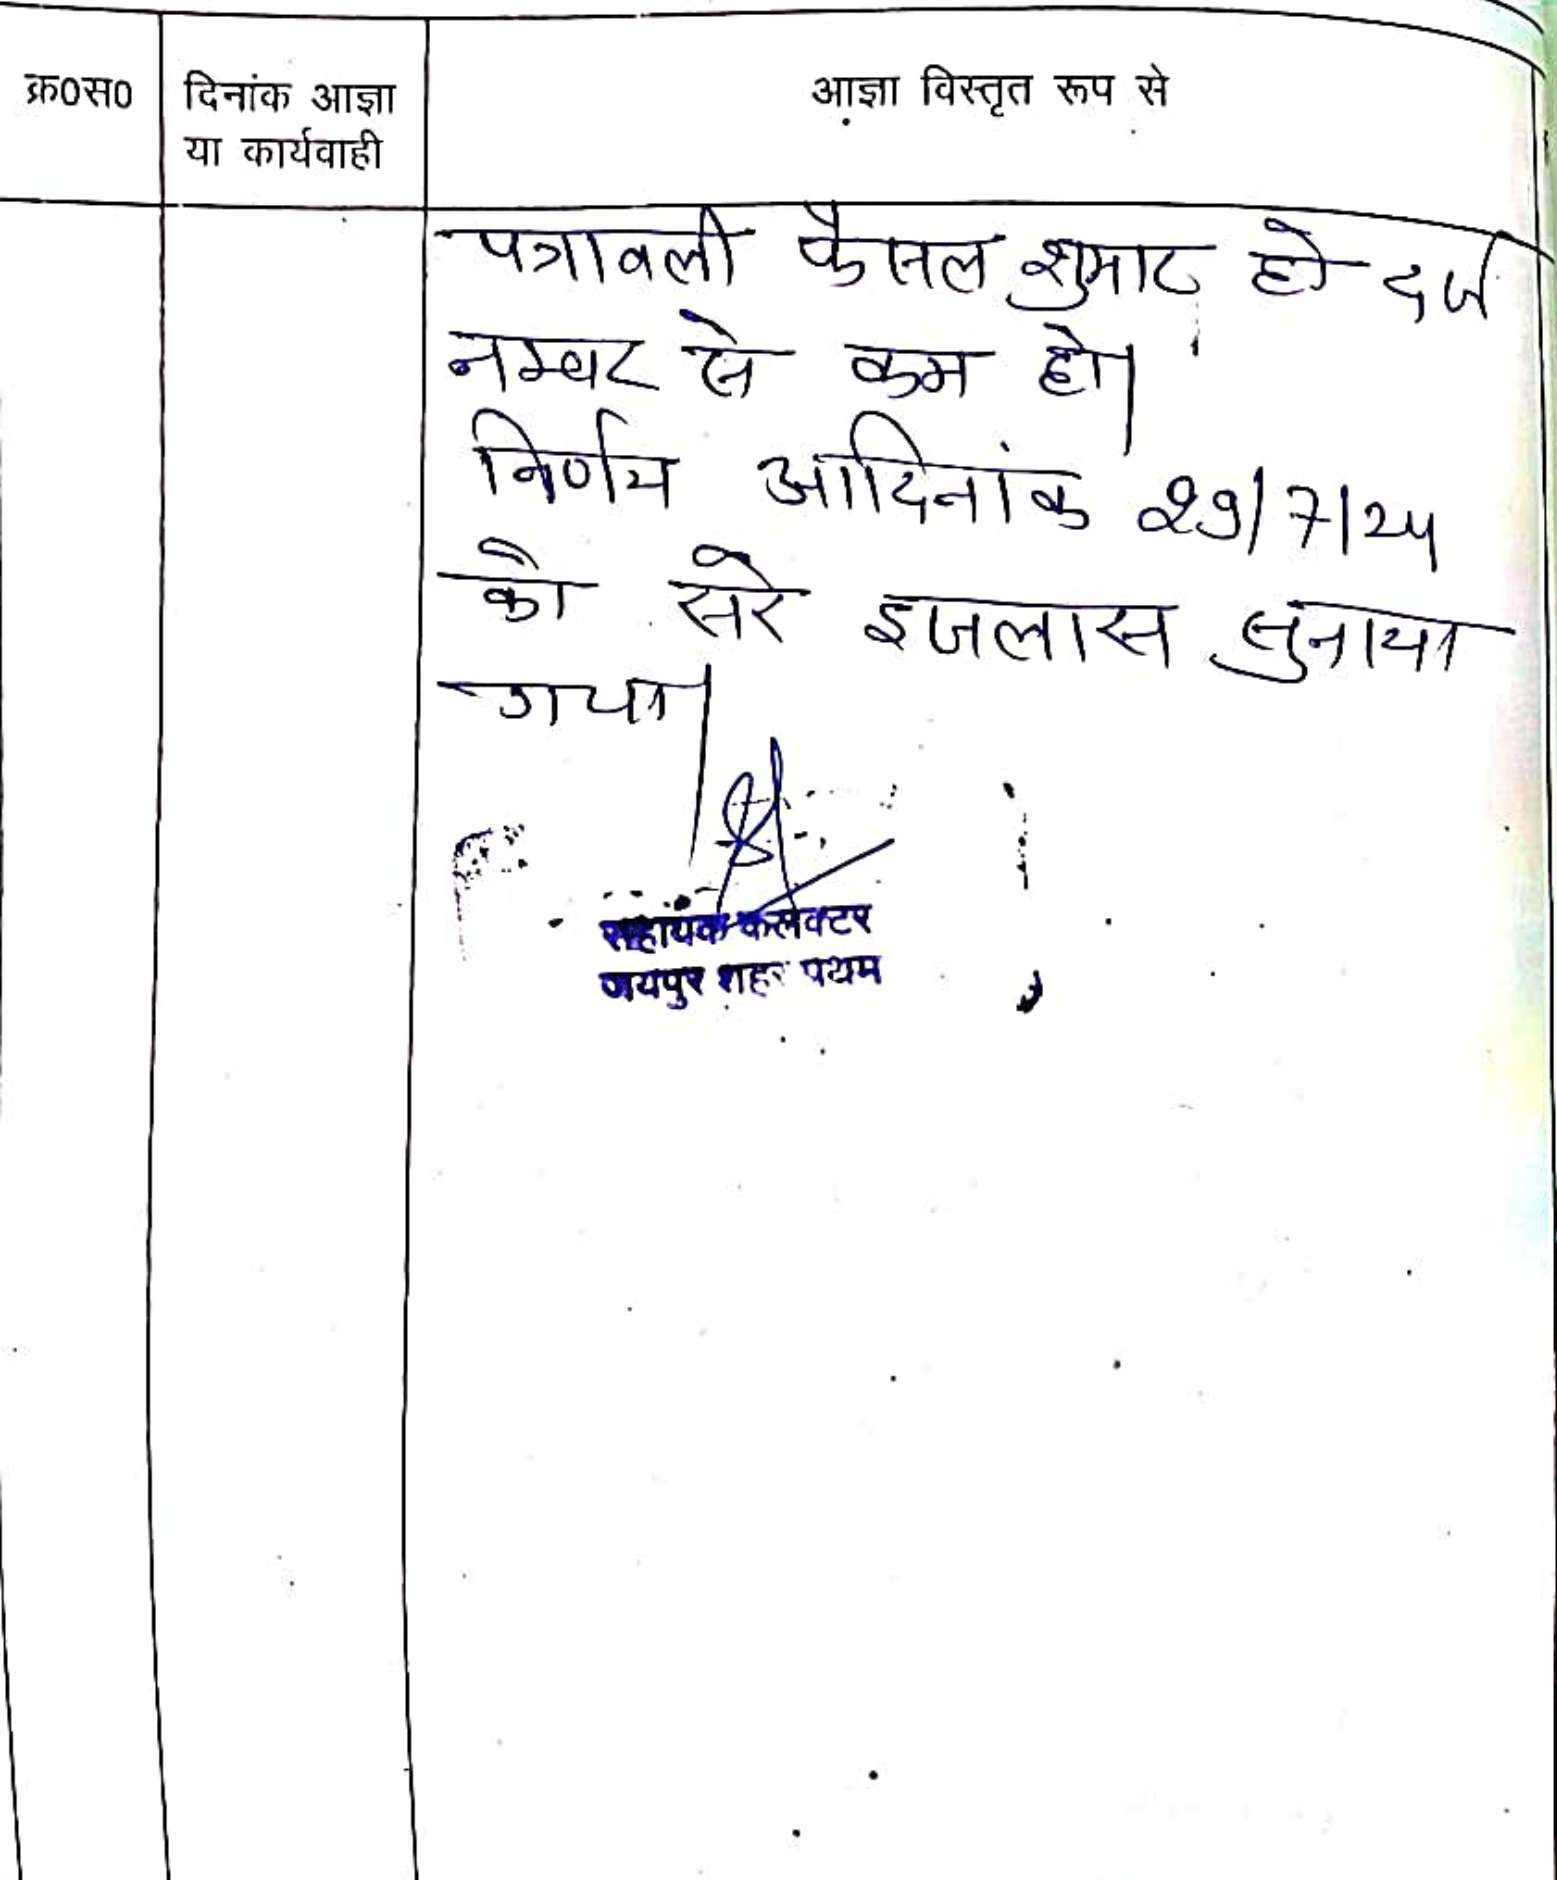 क्र०स०
दिनांक आज्ञा
या कार्यवाही
आज्ञा विस्तृत रूप से
पत्रावली फैसल शुमार हो दर्ज
नम्बर से कम हो।
निर्णय आदिनांक 29/7/24
को सरे इजलास सुनाया
गया।
सहायक कलेक्टर
जयपुर शहर प्रथम